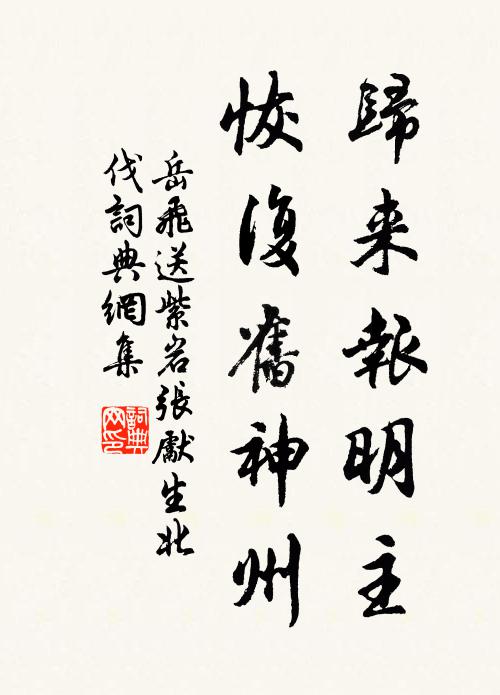 歸来報明主
恢復舊神州
岳飛送紫岩張獻生北
伐詞典網集
詞典
网印